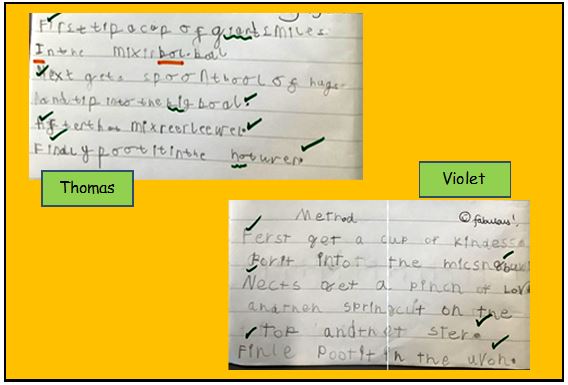 First tip a cap of giant smiles.
In the mixis bol. bal
Next get a spoonthool of hugs
and tip into the big boal!
After that mix reer lee wel.
Finaly poot it in the hot uven.
Thomas
Violet
Method
☺ fabulous!
Ferst get a cup of kindess
Porit intot the micsn
Nects get a pinch of Lov
and then sprincul on the
top and thet ster.
Finle poot it in the uvon.